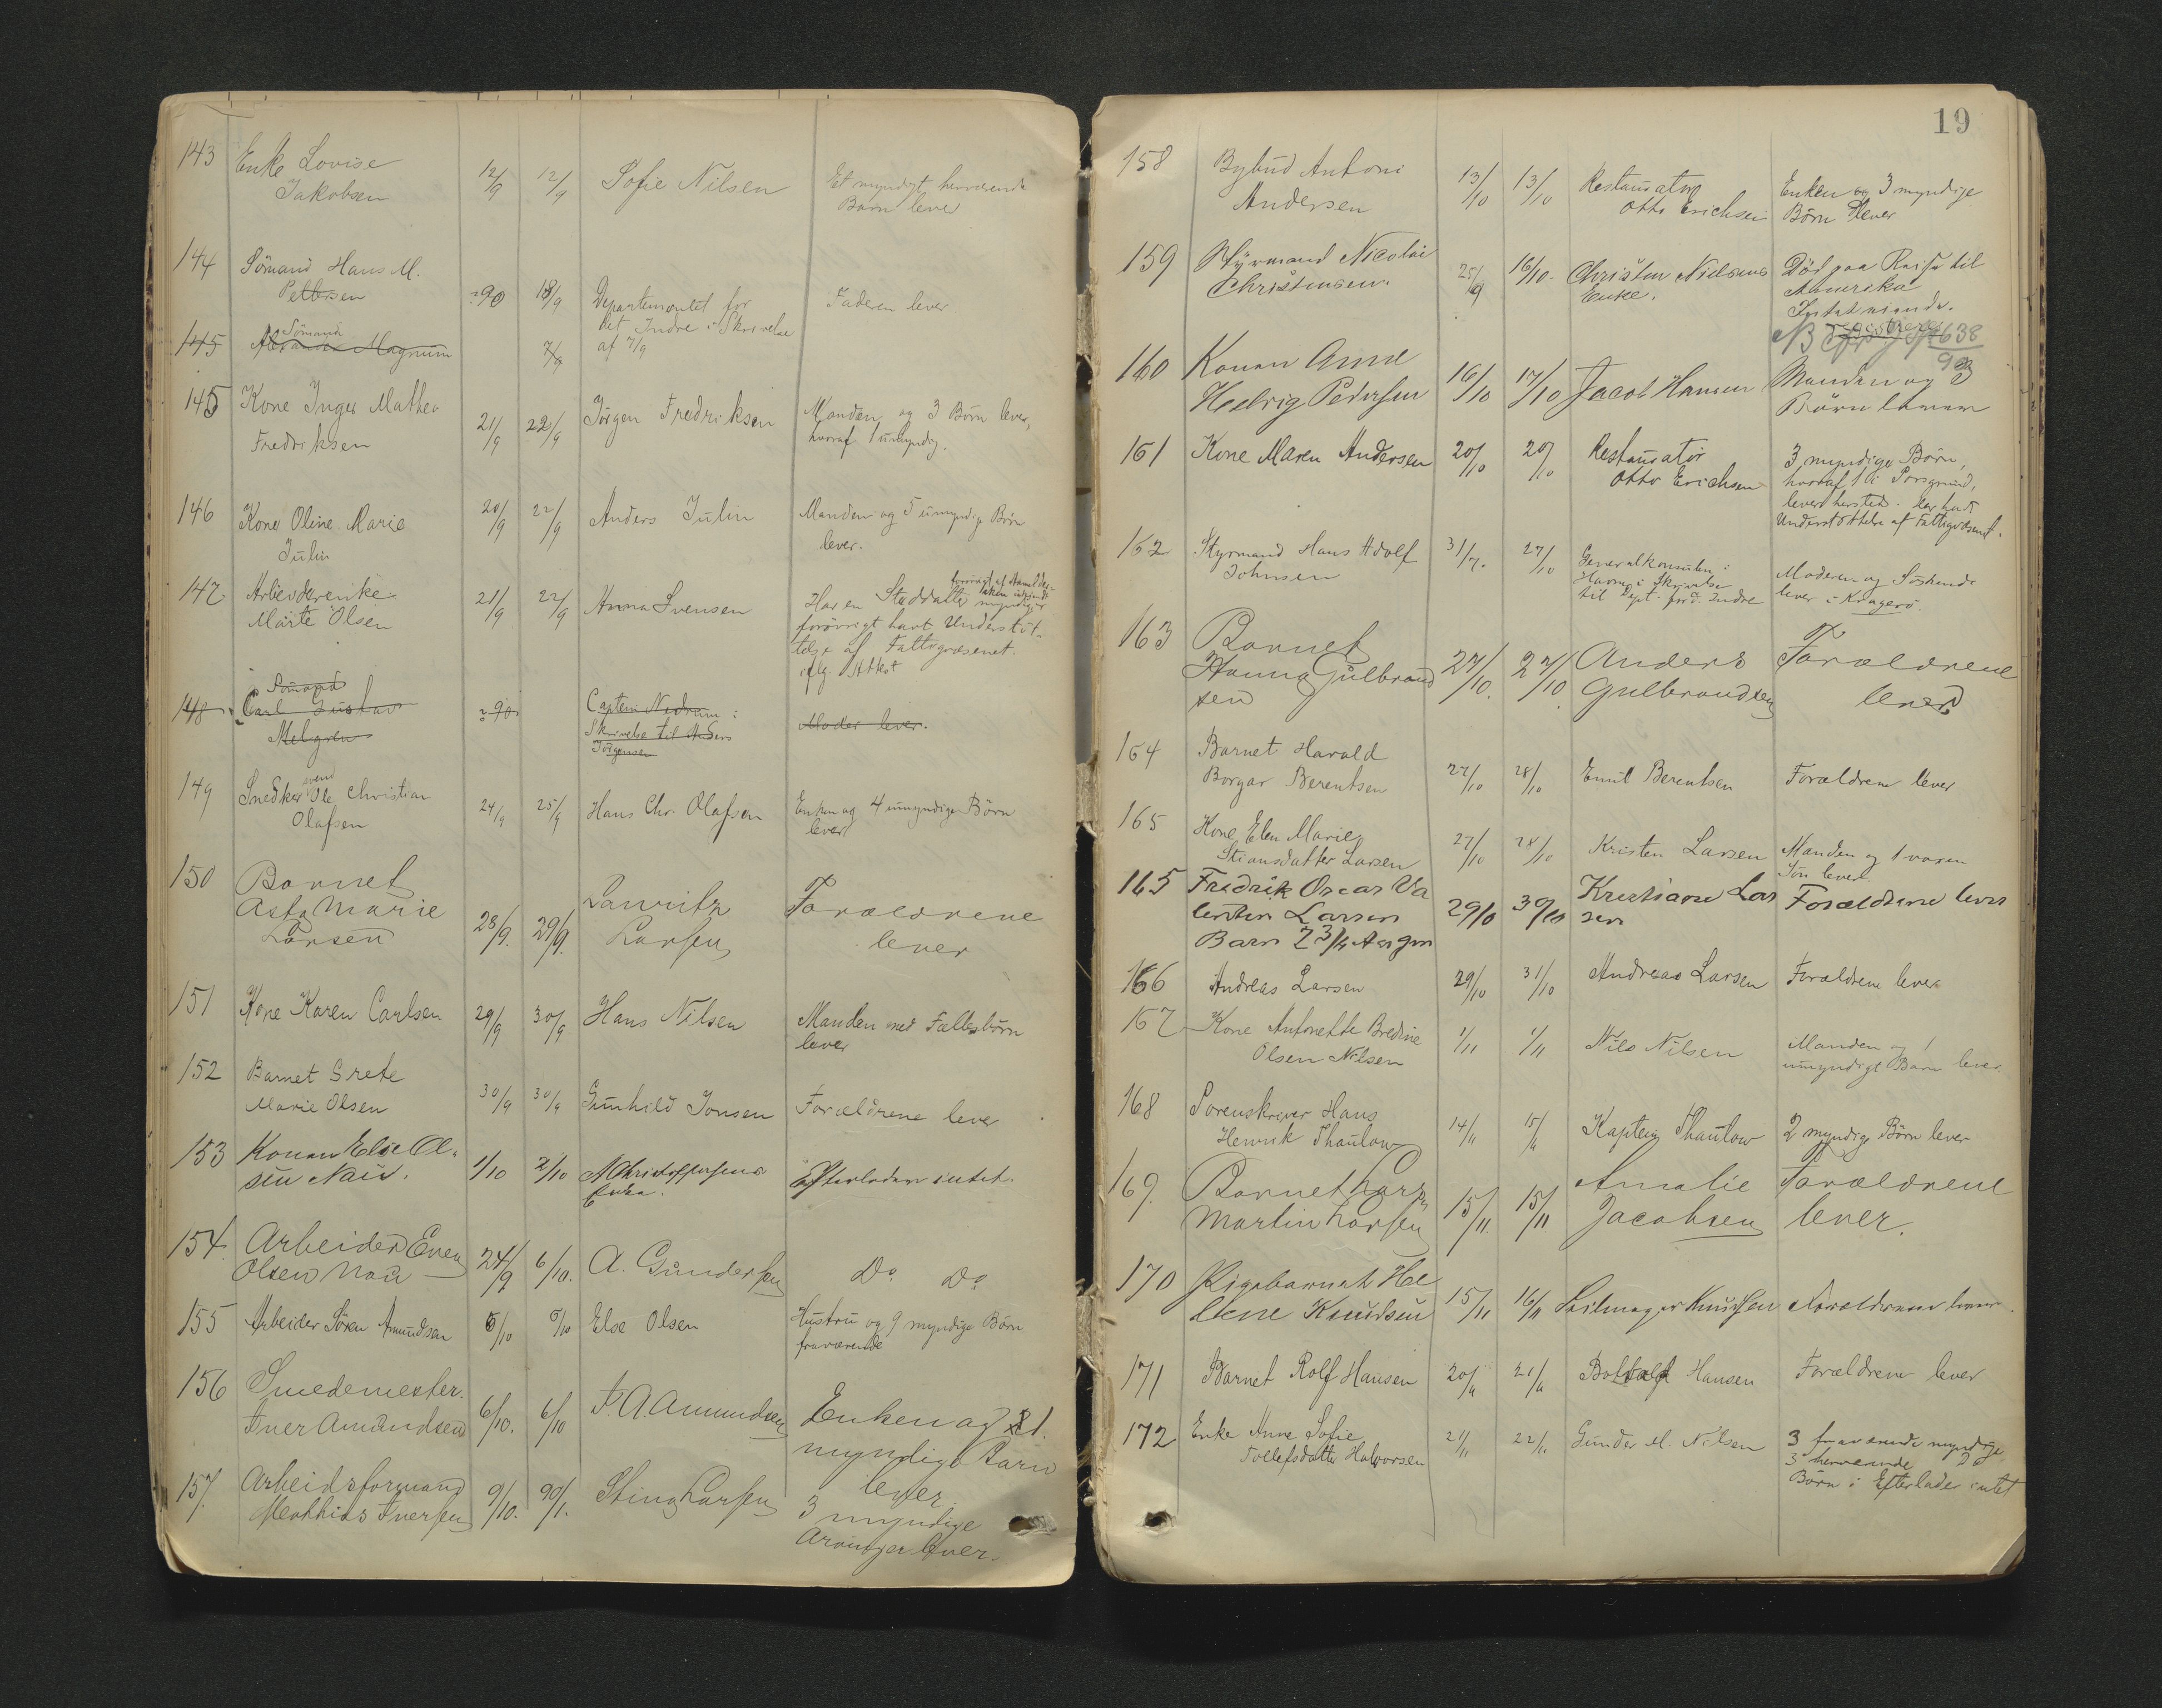 143 Enke Lovise 12/9 12/9 Sofie Nilsen Et myndigt herværende
Jakobsen Barn lever
144 Sömand Hans M. ?90 18/9 Departementet for Faderen lever.
Pettersen det Indre i Skrivelse
145 Sömand Magnum 7/9 af 7/9
145 Kone Inger Mathea 21/9 22/9 Jörgen Fredriksen Manden og 3 Börn lever,
Fredriksen hvoraf 1 umyndig.
146 Kone Oline Marie 20/9 22/9 Anders Julin Manden og 5 umyndige Börn
Julin lever.
147 Arbeiderenke 21/9 22/9 Anna Svensen Har en Steddatter myndig
Marte Olsen forövrigt havt Understöt-
telse af Fattigvæsenet.
iflg. Attest
148 Sömand
Carl Gustav ?90 Captein Nedrum i Moder lever.
Melgren Skrivelse til Anders
Jörgensen
149 Snedkersvend Ole Christian 24/9 25/9 Hans Chr. Olafsen Enken og 4 umyndige Börn
Olafsen lever
150 Barnet Lauritz Forældrene
Asta Marie 28/9. 29/9. Larsen lever
Larsen
151 Kone Karen Carlsen 29/9 30/9 Hans Nilsen Manden med Fællesbörn
lever
152 Barnet Grete 30/9 30/9 Gunhild Jonsen Forældrene lever
Marie Olsen
153 Konen Else Ol- 1/10 2/10 A Christoffersens Efterlader intet.
sen Nau. Enke.
154. Arbeider Even 24/9 6/10. A. Gundersen Do Do
Olsen Nau
155 Arbeider Sören Amundsen 5/10 5/10 Else Olsen Hustru og 9 myndige Börn
fraværende
156 Smedemester. 6/10. 6/10 F. A. Amundsen Enken og 1.
Iver Amundsen myndige Barn
lever.
157. Arbeidsformand 9/10. Stina Larsen 3 myndige
Mathias Iversen Arvinger lever.
19
158 Bybud Antoni 13/10 13/10 Restauratör Enken og 3 myndige
Andersen Otto Erichsen Börn lever
159 Styrmand Nicolai 25/9 16/10. Christen Nielsens Död paa Reise til
Christensen. Enke. Amerika
Intet eiende.
NB 638
160 Konen Anne 16/10 17/10 Jacob Hansen Manden og 3
Hedvig Pedersen Börn lever
161 Kone Maren Andersen 20/10 20/10 Restauratör 3 myndige Börn,
Otto Erichsen hvoraf 1 i Porsgrund,
lever hersted. Har havt
Understöttelse af Fattigvæsenet.
162 Styrmand Hans Adolf 31/7. 27/10 Generalkonsulen i Moderen og Söskende
Johnsen Havre i Skrivelse lever i Kragerö.
til Dept. for d. Indre
163 Barnet Anders Forældrene
Hanna Gulbrand 27/10. 27/10. Gulbrandsen lever
sen
164 Barnet Harald 27/10 28/10 Emil Berentsen Forældrene lever
Borgar Berentsen
165 Kone Elen Marie 27/10 28/10 Kristen Larsen Manden og 1 voxen
Stiansdatter Larsen Sön lever.
165 Fredrik Oscar Va Kristiane Lar Forældrene lever
lentin Larsen 29/10 30/10 sen
Barn 2 3/4 Aar gm
166 Andreas Larsen 29/10 31/10 Andreas Larsen Forældrene lever
167 Kone Antonette Bredine 1/11 1/11 Nils Nilsen Manden og 1
Olsen Nilsen umyndigt Barn lever.
168 Sorenskriver Hans 14/11 15/11 Kaptein Thaulow 2 myndige Börn lever
Henrik Thaulow
169. Barnet Lars 15/11. 15/11 Amalie Forældrene
Martin Larsen Jacobsen lever.
170 Pigebarnet He 15/11 16/11 Seilmager Knudsen Forældrene lever.
lene Knudsen
171 Barnet Rolf Hansen 20/11 21/11 Hansen Forældrene lever
172 Enke Anne Sofie 21/11 22/11 Gunder M. Nilsen 3 fraværende myndige
Tollefsdatter Halvorsen 3 herværende
Börn i Efterlader intet